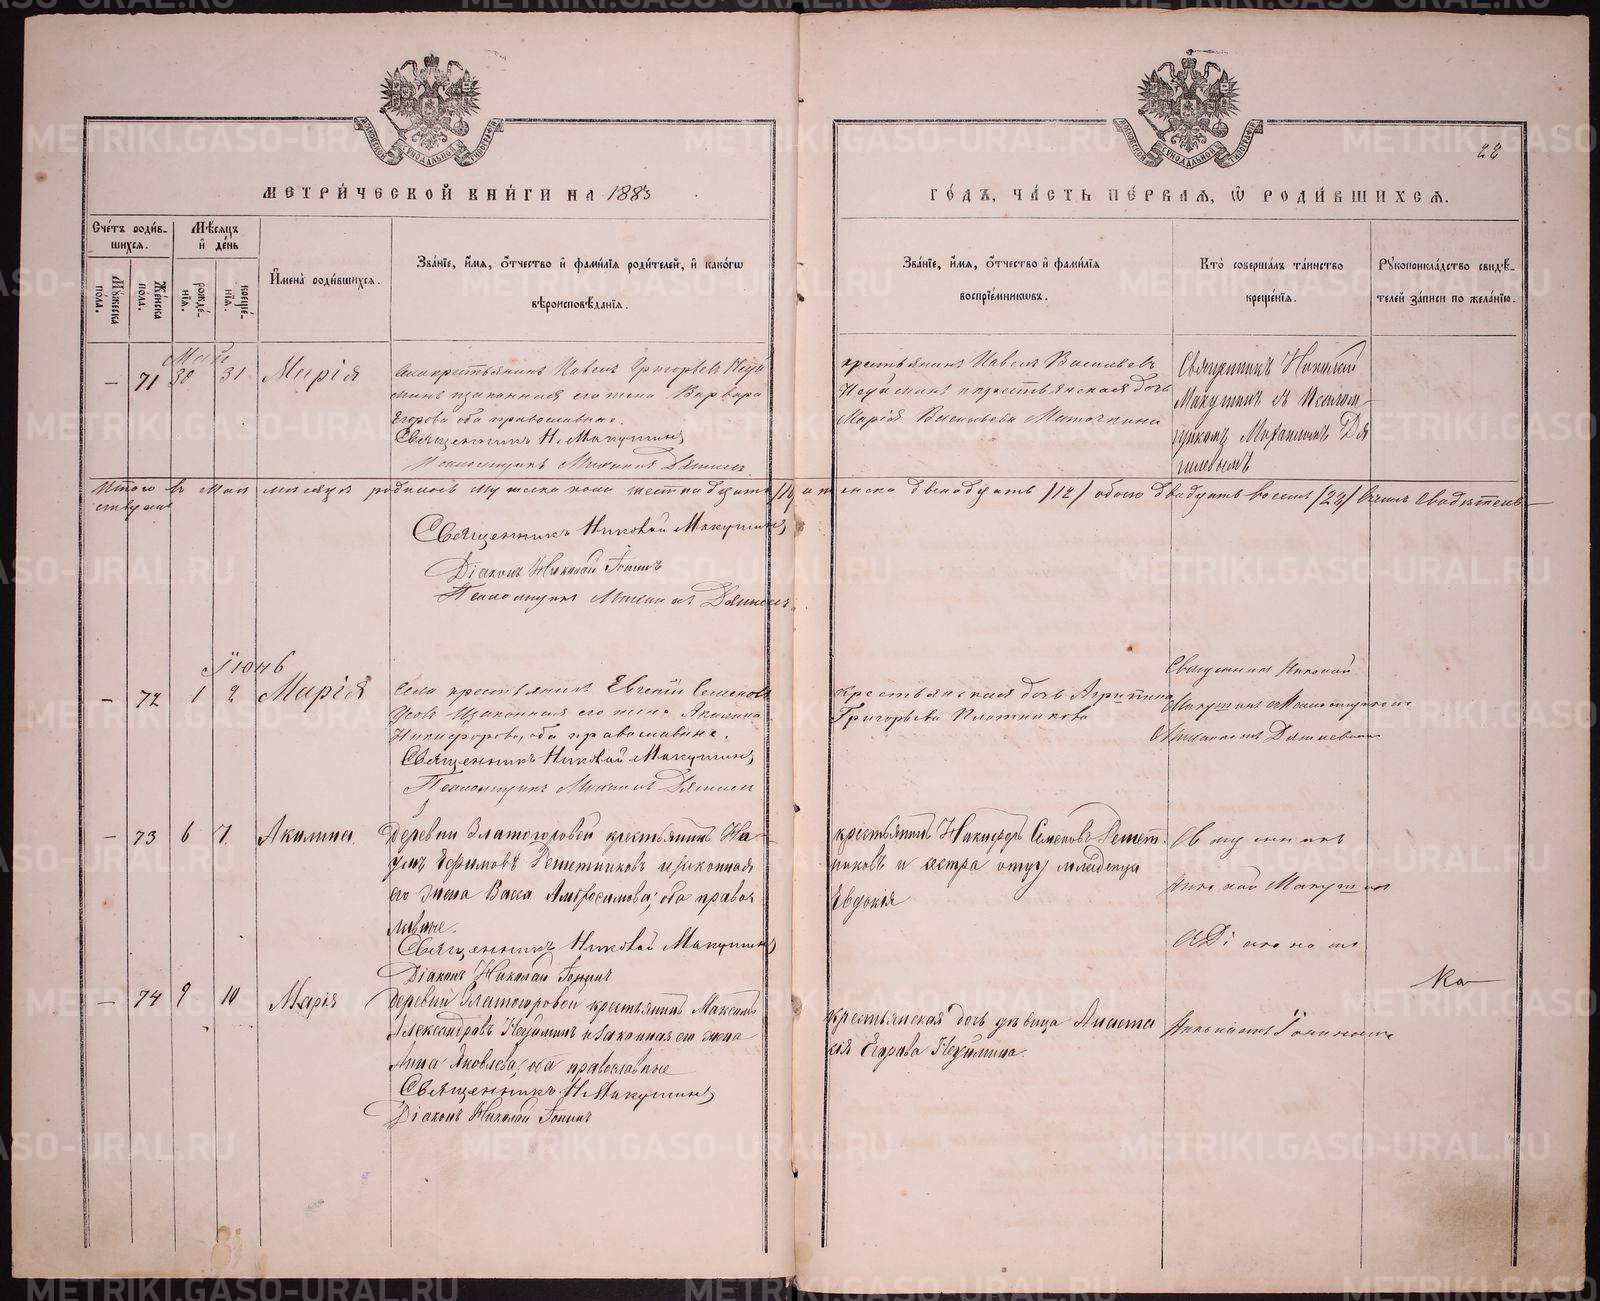 МЕТРИ́ЧЕСКОЙ КНИ́ГИ НА 1883
ГО́ДЪ, ЧА́СТЬ ПЕ́РВАЯ, Ѡ РОДИ́ВШИХСЯ.
22
Сче́тъ роди́в-
шихся.
Мѣ́сяцъ
и де́нь
Му́жеска
по́ла.
Же́нска
по́ла.
рожде́-
нїя.
креще́-
нїя.
Имена̀ роди́вшихся.
Зва́нїе, и́мя, о́тчество и фами́лїя роди́телей, и како́гѡ
вѣроисповѣ́данїя.
Зва́нїе, и́мя, о́тчество и фами́лїя
воспрїе́мникѡвъ.
Кто̀ соверша́лъ та́инство
креще́нїя.
Рукоприкла́дство свидѣ́-
телей за́писи по жела́нїю.
Май
– 71 30 31 Марія
Села крестьянинъ Павелъ Григорьевъ Неуй
минъ и законная его жена Варвара
Егорова оба православные.
Священникъ Н. Макушинъ
Псаломщикъ Михаилъ Дягилевъ
крестьянинъ Павелъ Васильевъ
Неуйминъ и крестьянская дочь
Марія Васильева
Священникъ Николай
Макушинъ съ Псалом-
щикомъ Михаиломъ Дя
гилевымъ
Итого въ Маѣ мѣсяцѣ родилось мужеска пола шестнадцать /16/ а женска двенадцать /12/ обоего двадцать восемь /28/ въ чемъ свидѣтель-
ствуемъ
Священникъ Николай Макушинъ
Діаконъ Николай Тонинъ
Псаломщикъ Михаилъ Дягилевъ
Іюнь
– 72 1 2 Марія
Села крестьянинъ Евгеній Семеновъ
Усовъ и законная его жена Акилина
Никифорова, оба православные.
Священникъ Николай Макушинъ
Псаломщикъ Михаилъ Дягилевъ
крестьянская дочь Агрипина
Григорьева Плотникова
Священникъ Николай
Макушинъ съ Псаломщикомъ
Михаиломъ Дягилевымъ
– 73 6 7 Акилина
Деревни Златогоровой крестьянинъ На-
умъ Ефимовъ Решетниковъ и законная
его жена Васса Амбросимова; оба правос
лавные.
Священникъ Николай Макушинъ
Діаконъ Николай Тонинъ
крестьянинъ Никифоръ Семеновъ Решет-
никовъ и сестра отцу младенца
Евдокія
Священникъ
Николай Макушинъ
съ Діакономъ
– 74 9 10 Марія
Деревни Златогоровой крестьянинъ Максимъ
Александровъ Неуйминъ и законная его жена
Анна Яковлева, оба православные
Священникъ Н. Макушинъ
Діаконъ Николай Тонинъ
крестьянская дочь дѣвица Анаста
сія Егорова Неуймина.
Николаемъ Тонинымъ